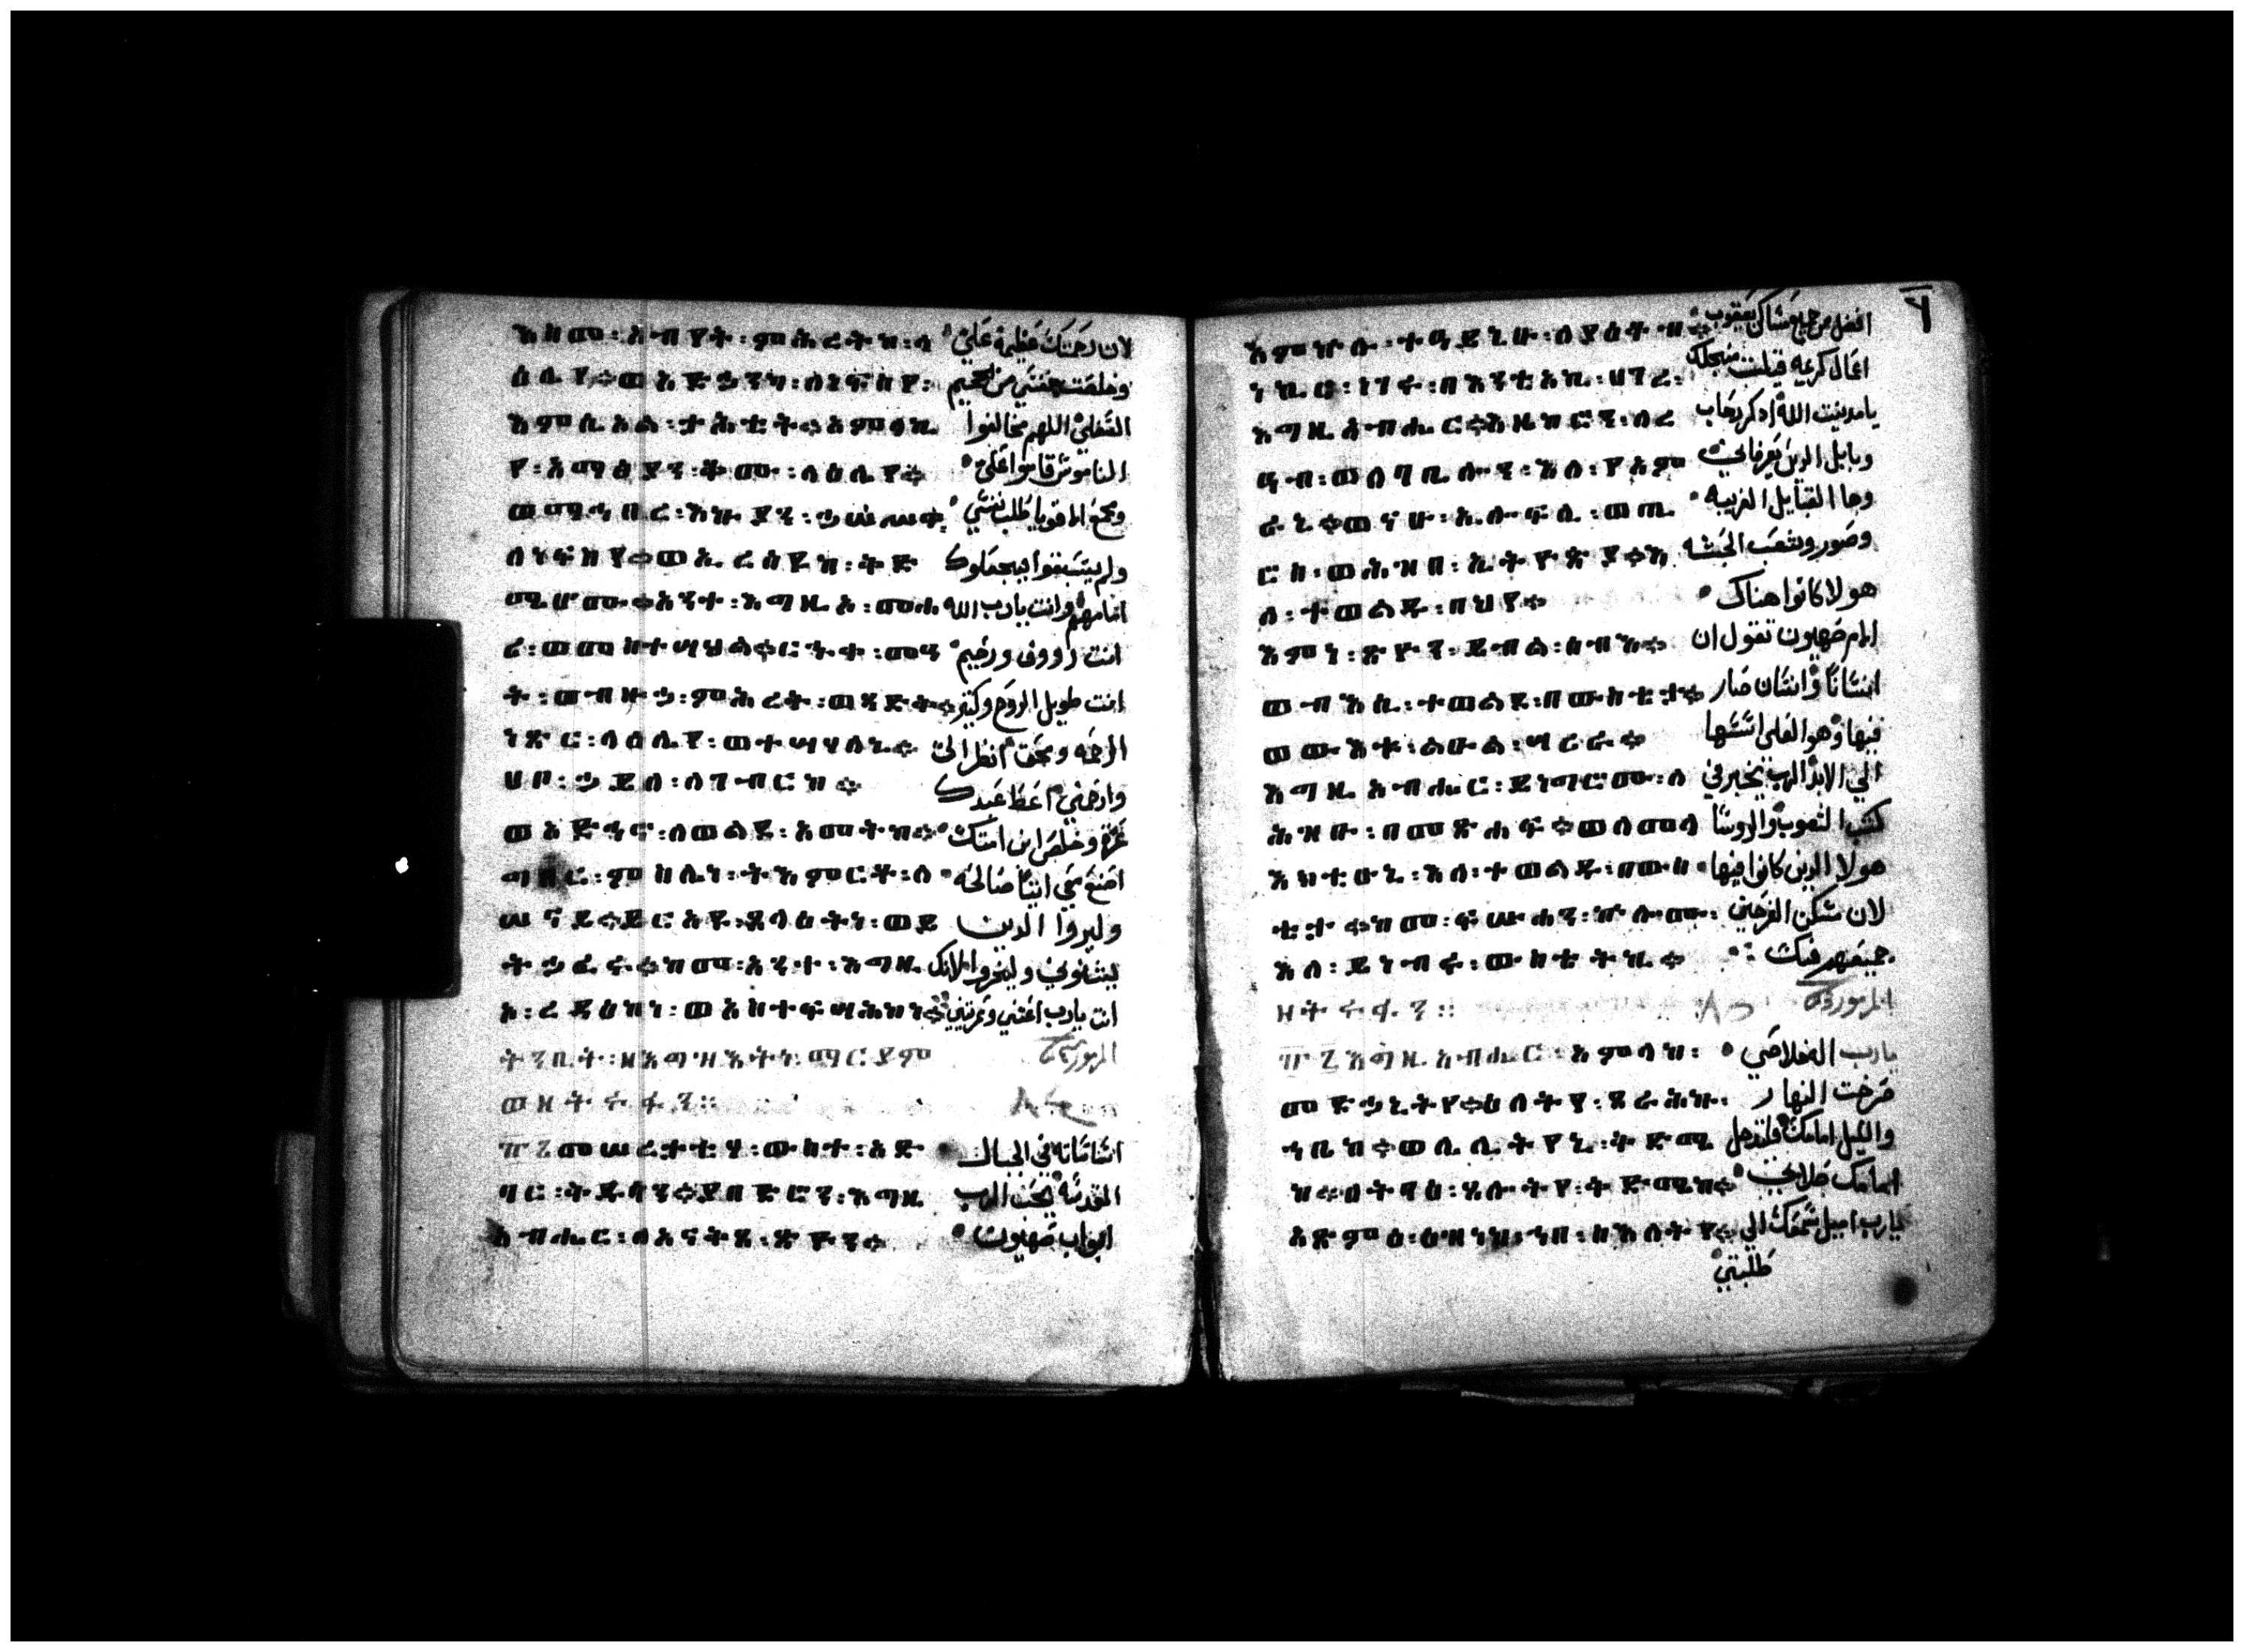 እስመ፡ አብየት፡ ምሕረትከ፡ ላ لان رحمتك عظيمة علي
ዕሌየ፡ ወአድኃንካ፡ ለነፍስየ፡ ونجت نفسي من الجحيم
እምሲኦል፡ ታሕቲት፡ እግዚኦ السفلي اللهم مخالفوا
የ፡ አማፅያን፡ ቆሙ፡ ላዕሌየ፡ الناموس قاموا علي
ወማኅበረ፡ እኩያን፡ ኃሠሥዋ፡ ومجمع الاقويا طلب نفسي
ለነፍስየ፡ ወኢረሰዩከ፡ ቅድ ولم يسبقوا يجعلوك
ሜሆሙ፡ አንተ፡ እግዚኦ፡ መሐ امامهم وانت يارب الله
ሪ፡ ወመስተሣህል፡ ርኁቀ፡ መዓ انت رووف ورحيم
ት፡ ወብዙኃ፡ ምሕረት፡ ወጻድቅ፡ انت طويل الروح وكثير
ነጽር፡ ላዕሌየ፡ ወተሣሃለኒ፡ الرحمه ومحق انظر الي
ሀቦ፡ ኃይለ፡ ለገብርከ፡ وارحمني اعط عبدك
ወአድኅኖ፡ ለወልደ፡ አመትከ፡ عزة وخلص ابن امتك
ግበር፡ ምስሌነ፡ ትእምርተ፡ ለ اصنع معي ايتا صالحه
ሠናይ፡ ይርአዩ፡ ጸላዕትነ፡ ወይ وليروا الدين
ትኃፈሩ፡ ከመ፡ አንተ፡ እግዚ يشنوني وليخزوا لانك
አ፡ ረዳእከነ፡ ወአስተፍሣሕከነ፡ انت يارب اعنتني وعزيتني
ወዘትፉፋን፡
፹፮ መሠረታቲሃ፡ ውስተ፡ አድ اساساته في الجبال
ባር፡ ቅዱሳን፡ ያበድሮን፡ እግዚ المقدسه يحب الرب
አብሔር፡ ለአናቅጸ፡ ጽዮን፡ ابواب صهيون
እምኵሉ፡ ተዓይኒሁ፡ ለያዕቆብ፡ افضل من جميع مساكن يعقوب
ነኪር፡ ነገሩ፡ በእንቲአኪ፡ ሀገረ፡ اعمال كريمه قيلت من جلك
እግዚአብሔር፡ እዜከሮን፡ ለረ يامدينت الله ادكر رحاب
ዓብ፡ ወለባቢሎን፡ እለ፡ የአም وبابل الدين يعرفاني
ራኒ፡ ወናሁ፡ ኢሎፍሊ፡ ወጢ وها القبايل الغريبه
ሮስ፡ ወሕዝበ፡ ኢትዮጵያ፡ እ وصور وشعب الحبشه
ለ፡ ተወልዱ፡ በህየ፡ هولا كانوا هناك
እምነ፡ ጽዮን፡ ይብል፡ ሰብእ፡ الام صهيون تقول ان
ወብእሲ፡ ተወልደ፡ በውስቴታ፡ انسانا وانسان صار
ወውእቱ፡ ልዑል፡ ሣረራ፡ فيها وهو العلي اسسها
እግዚአብሔር፡ ይነግሮሙ፡ ለ الي الابد الرب يخبر في
ሕዝብ፡ በመጽሐፍ፡ ወለመላ كتب الشعوب والروسا
እክቲሁኒ፡ እለ፡ ተወልዱ፡ በውስ هولا الدين كانوا فيها
ቴታ፡ ከመ፡ ፍሡሓን፡ ኵሎሙ፡ لان مسكن الفرحين
እለ፡ ይነብሩ፡ ውስቴትኪ፡ جميعهم فيك
ዘትፉፋን፡፡
፹፯ እግዚአብሔር፡ አምላከ፡ يارب اله خلاصي
መድኃኒትየ፡ ዕለትየ፡ ጸራሕኩ፡ صرخت النهار
ኀቤከ፡ ወሌሊትየኒ፡ ቅድሜ والليل امامك فلتدخل
ከ፡ ትባእ፡ ጸሎትየ፡ ቅድሜከ፡ امامك صلاتي
አጽምዕ፡ እዝነከ፡ ኀበ፡ ስእለትየ፡ يارب اميل سمعك الي
طلبتي